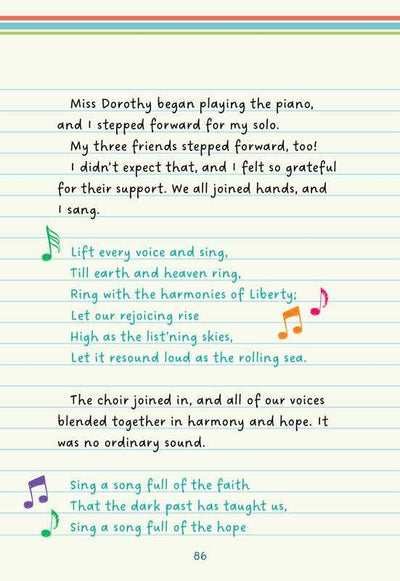 Miss Dorothy began playing the piano,
and I stepped forward for my solo.
My three friends stepped forward, too!
I didn't expect that, and I felt so grateful
for their support. We all joined hands, and
I sang.
Lift every voice and sing,
Till earth and heaven ring,
Ring with the harmonies of Liberty;
Let our rejoicing rise
High as the list'ning skies,
Let it resound loud as the rolling sea.
The choir joined in, and all of our voices
blended together in harmony and hope. It
was no ordinary sound.
Sing a song full of the faith
That the dark past has taught us,
Sing a song full of the hope
86